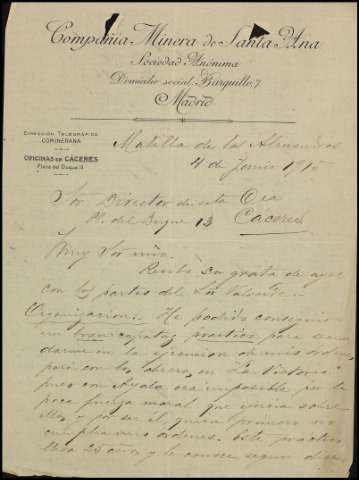 Compañía Minera de Santa Ana
Sociedad Anónima
Domicilio social: Barquillo, 7
Madrid
DIRECCIÓN TELEGRÁFICA
COMINERANA
OFICINAS EN CÁCERES
Plaza del Duque 13
Matilla de los Almendros
4 de Junio 1915
Sor Director de esta Cia
Pl. del Duque 13 Cáceres
Muy Sor mio:
Recibo su grata de ayer
con los partes del Sor Valverde.-
Organización: He podido conseguir
un buen capataz practico para secun
darme en la ejecucion de mis ordenes
para con los obreros en "La Victoria"
pues con Ayala era imposible por la
poca fuerza moral que ejercia sobre
ellos, y por ser el, quien primero no
cumplia mis ordenes. Este practico
lleva 25 años y le conoce segun dice